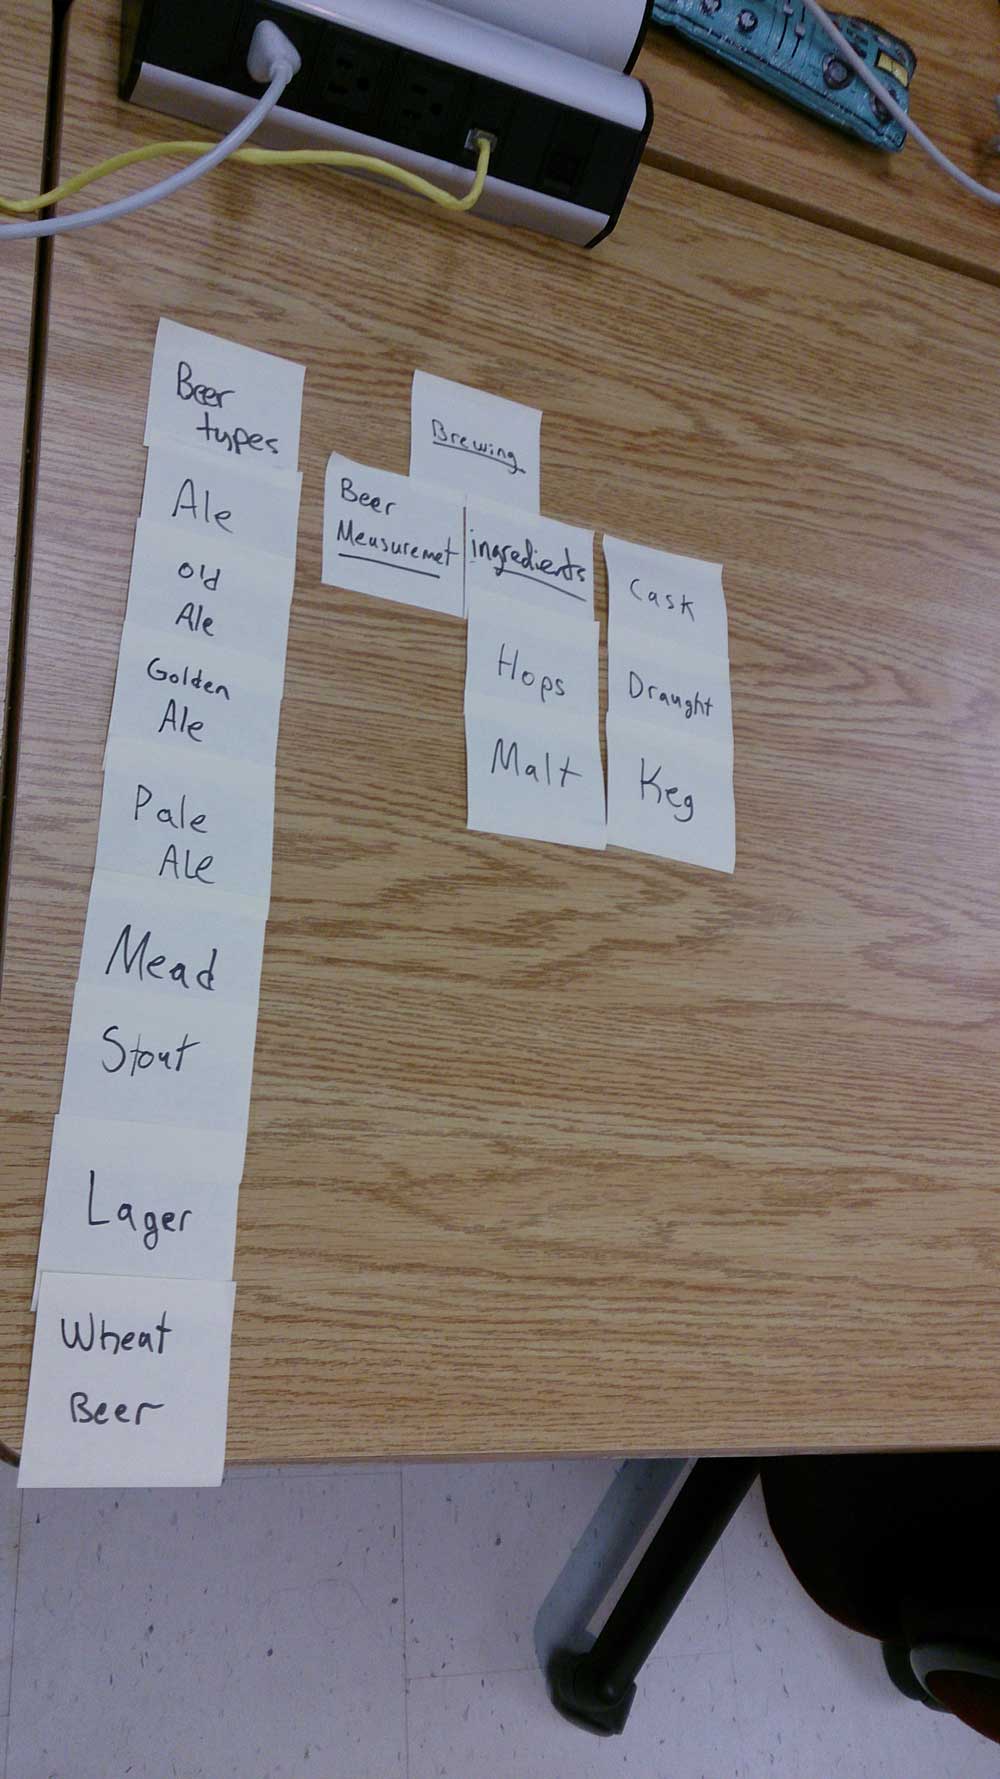 Beer
types
Ale
old
Ale
Golden
Ale
Pale
Ale
Mead
Stout
Lager
Wheat
Beer
Brewing
Beer
Measuremet
ingredients
Hops
Malt
Cask
Draught
Keg